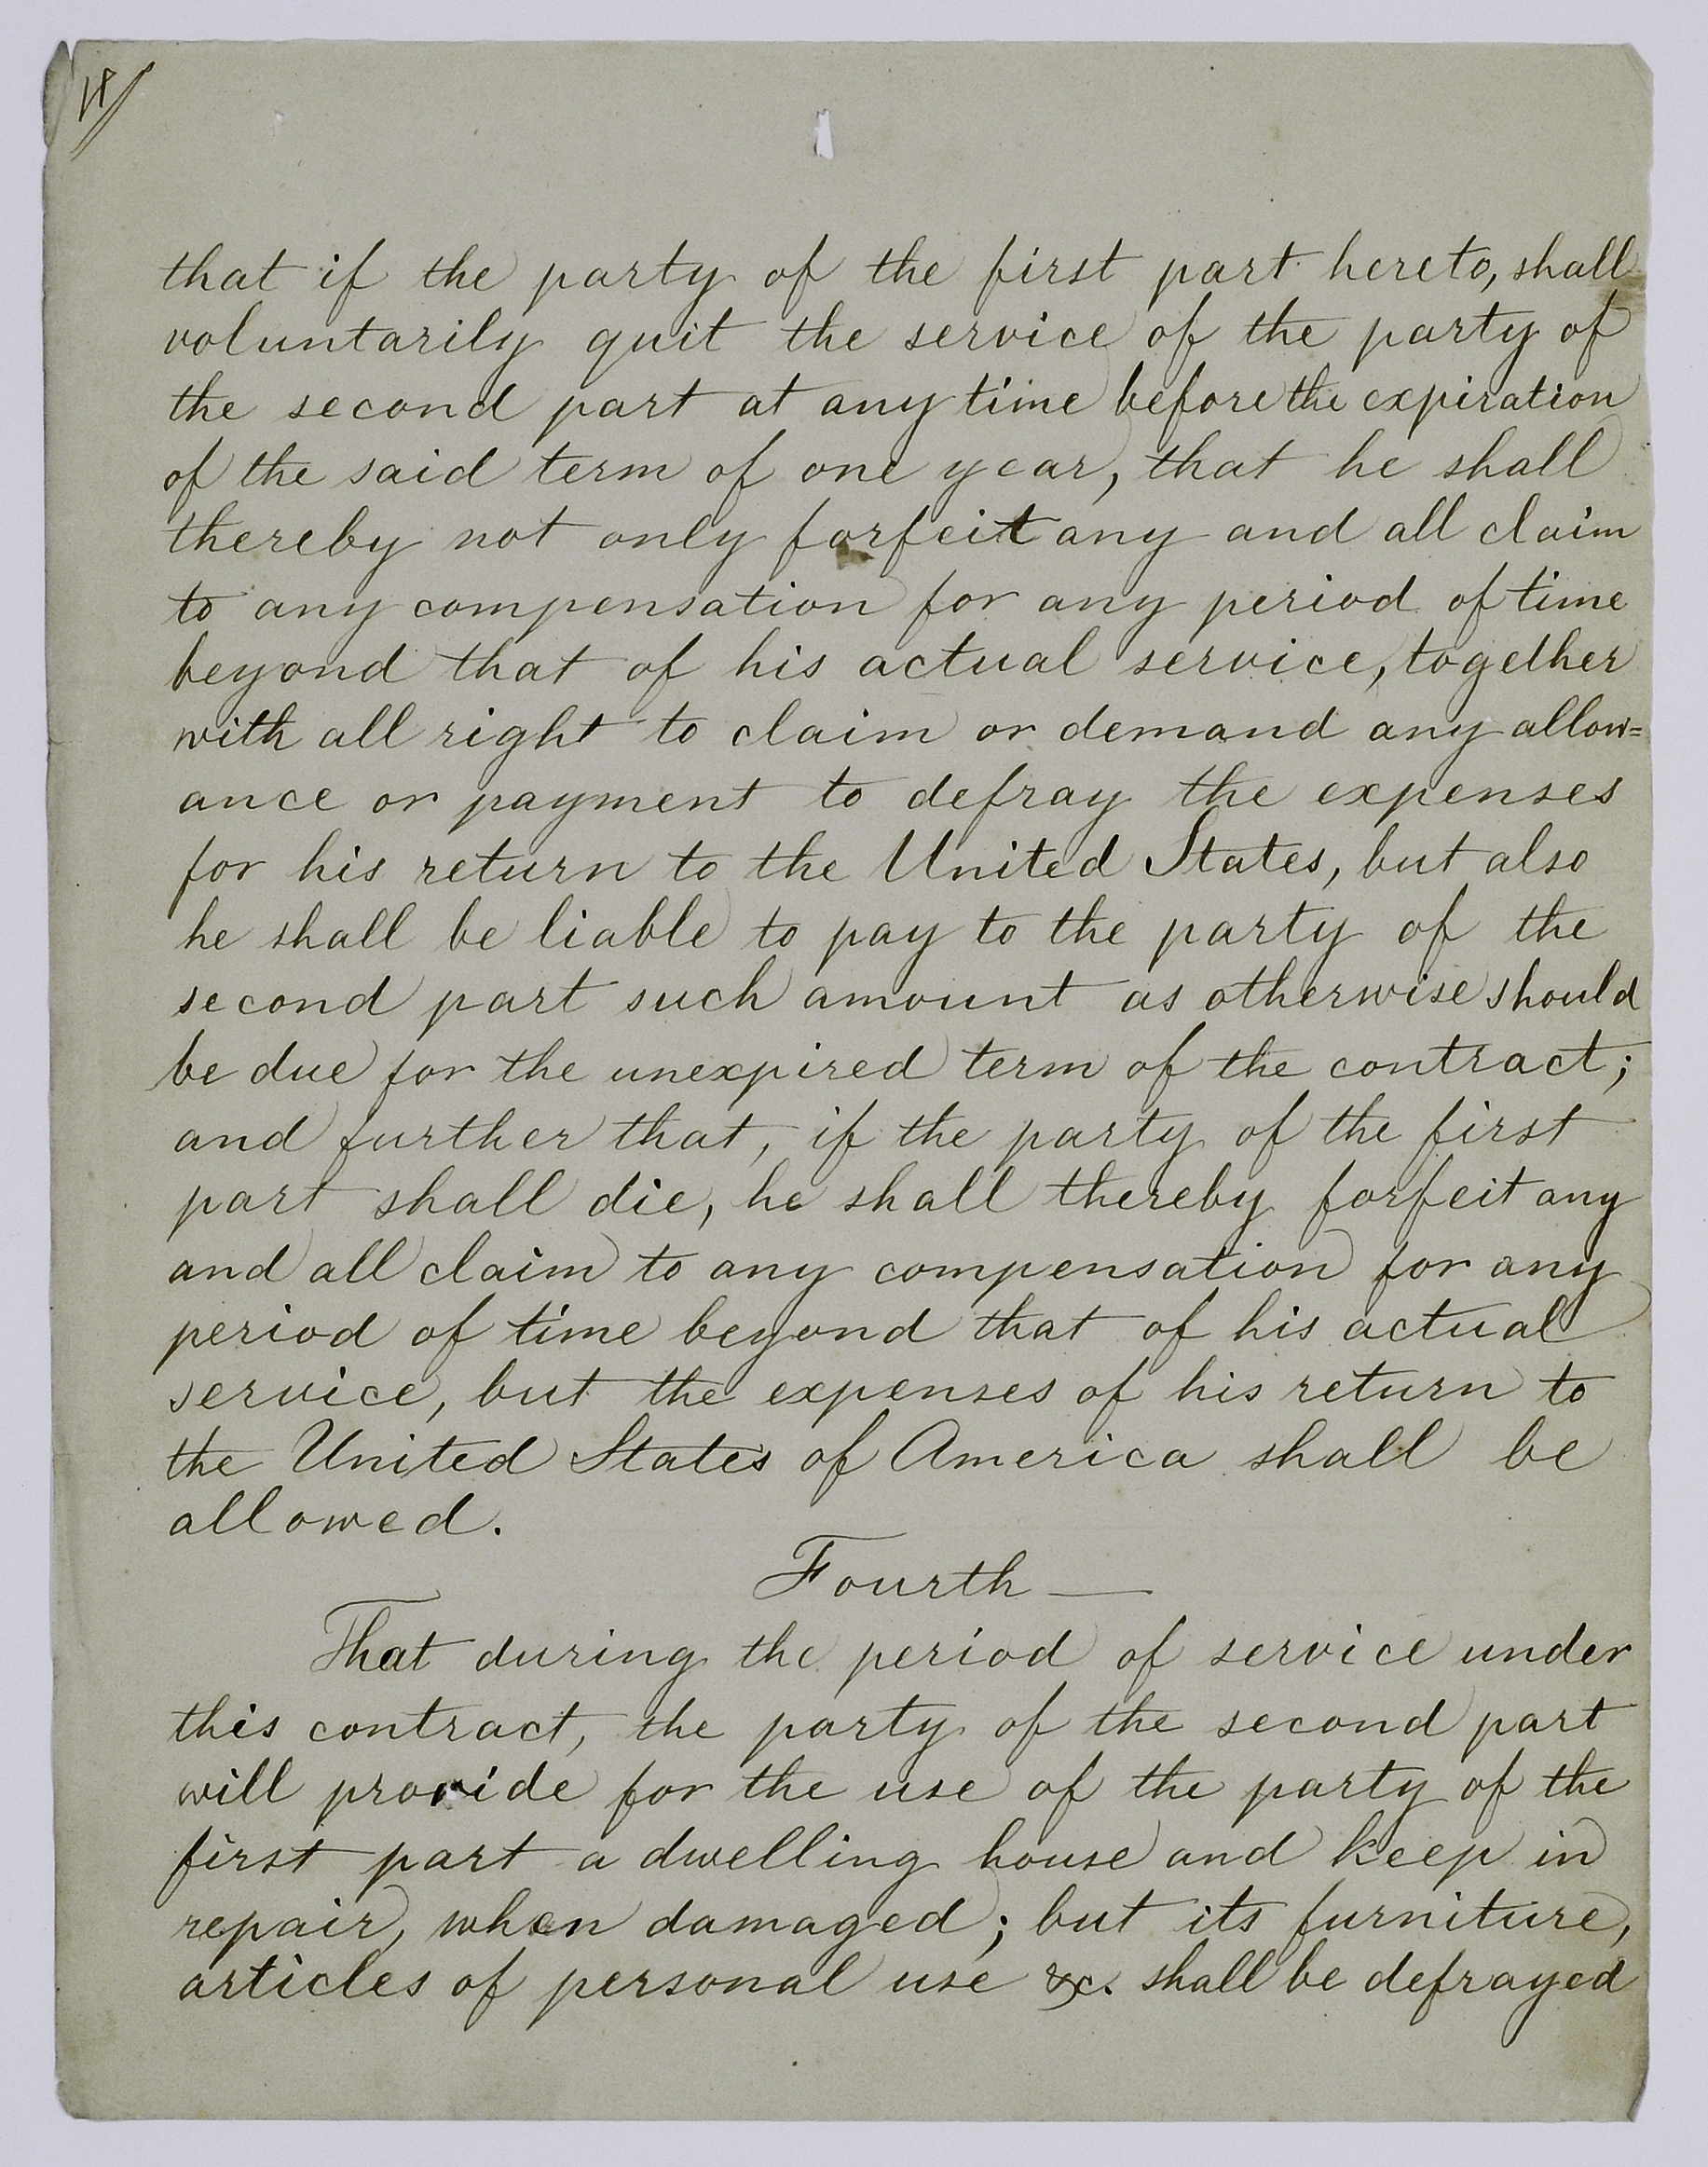 that if the party of the first part hereto, shall
voluntarily quit the service of the party of
the second part at any time before the expiration
of the said term of one year, that he shall
thereby not only forfeit any and all claim
to any compensation for any period of time
beyond that of his actual service, together
with all right to claim or demand any allow=
ance or payment to defray the expenses
for his return to the United States, but also
he shall be liable to pay to the party of the
second part such amount as otherwise should
be due for the unexpired term of the contract;
and further that, if the party of the first
part shall die, he shall thereby forfeit any
and all claim to any compensation for any
period of time beyond that of his actual
service, but the expenses of his return to
the United States of America shall be
allowed.
Fourth —
That during the period of service under
this contract, the party of the second part
will provide for the use of the party of the
first part a dwelling house and keep in
repair, when damaged; but its furniture,
articles of personal use &c. shall be defrayed